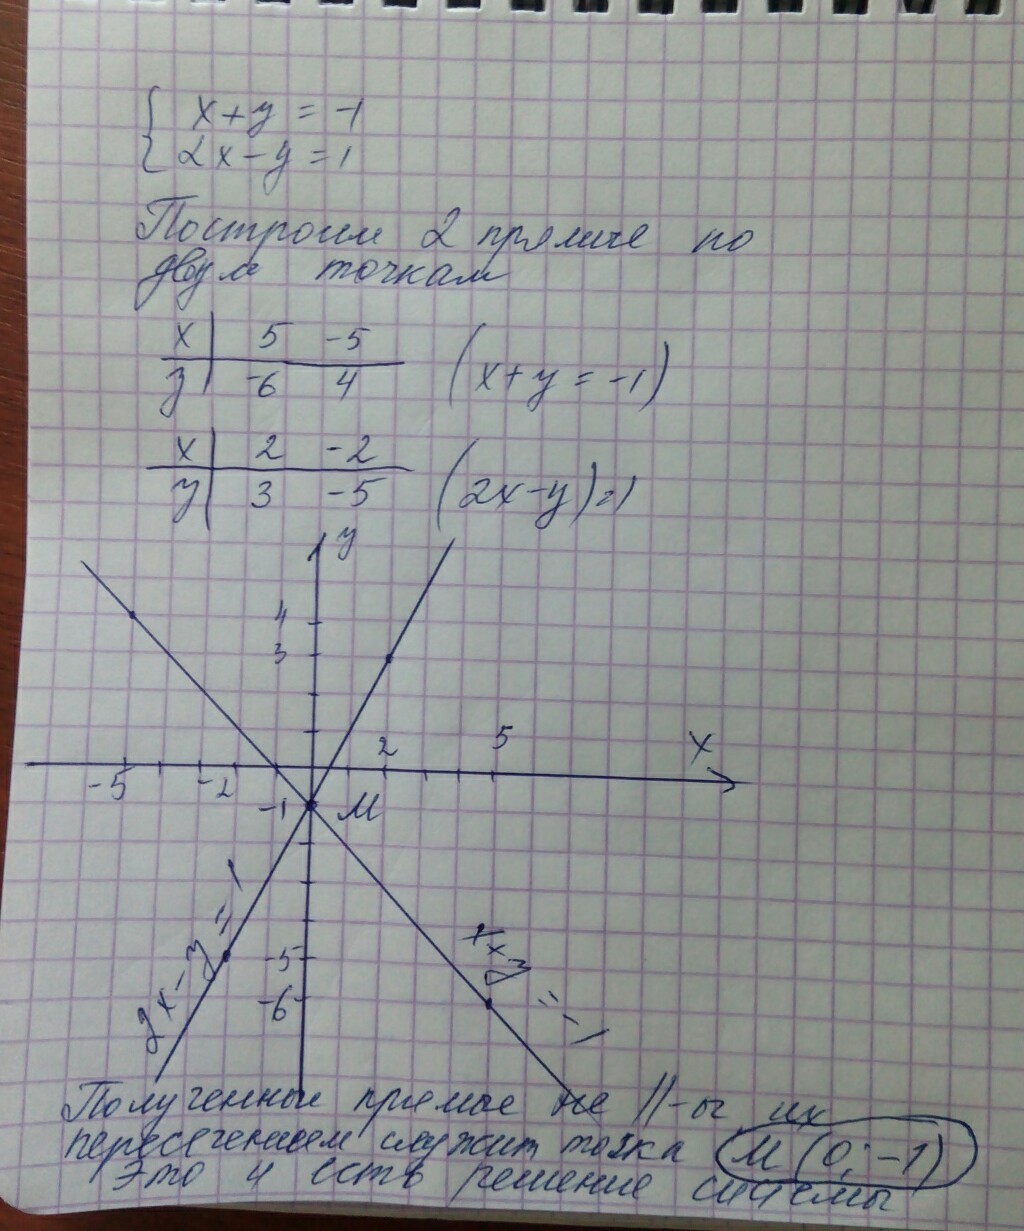 { x + y = -1
{ 2x - y = 1
Построим 2 прямые по
двум точкам
x | 5 -5
y | -6 4 (x + y = -1)
x | 2 -2
y | 3 -5 (2x - y) = 1
y
4
3
-5 -2 2 5 x
-1 M
2x - y = 1
x + y = -1
-5
-6
Полученные прямые не ||-ы, их
пересечением служит точка M (0; -1)
Это и есть решение системы